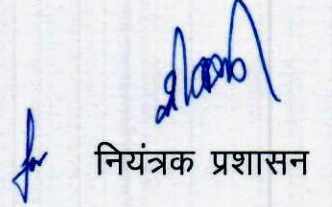 for नियंत्रक प्रशासन